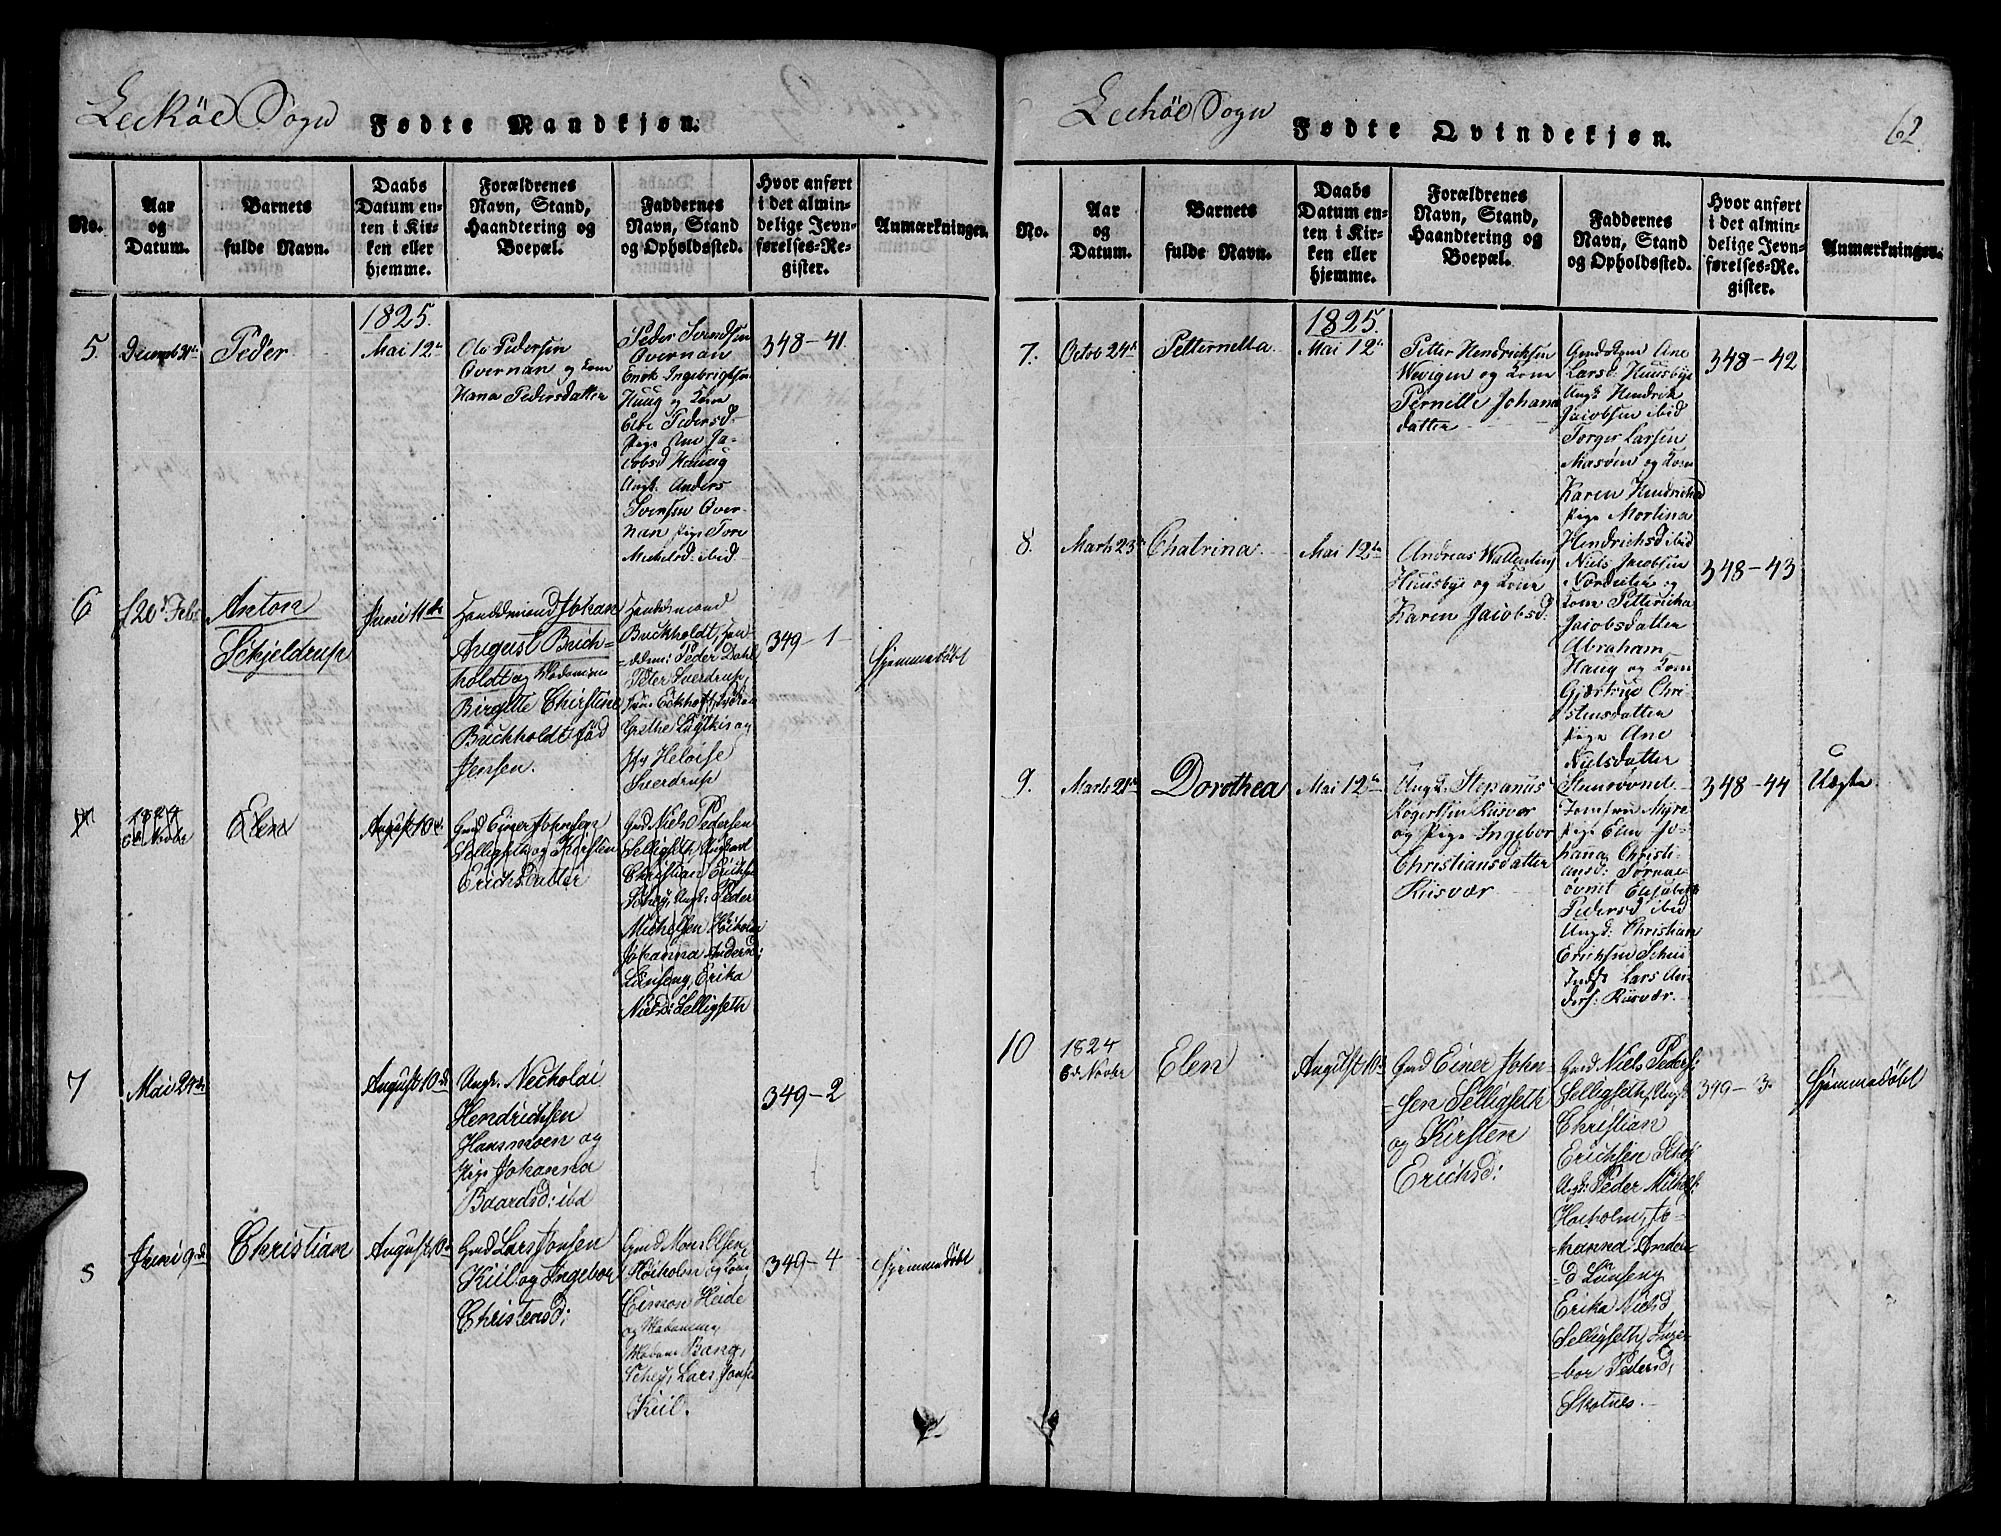 Leckøe Sogn
Fødte Mandkjøn.
No.
Aar
og
Datum.
Barnets
fulde Navn.
Daabs
Datum en-
ten i Kir-
ken eller
hjemme.
Forældrenes
Navn, Stand,
Haandtering og
Boepæl.
Faddernes
Navn, Stand
og Opholdssted.
Hvor anført
i det almin-
delige Jevn-
førelses-Re-
gister.
Anmærkninger.
1825.
5
Decemb 31te
Peder
Mai 12te
Ole Pedersen
Overnan og Kone
Hana Pedersdatter
Peder Svendsen
Overnan
Enok Ingebrigtsen
Haug og Kone
Else Pedersd.
Pige Ane Ja-
cobsd Haug
Ungk. Anders
Svensen Over-
nan Pige Tore
Michelsd. ibid
348-41
6
f 20d Febr
Anton
Schjeldrup
Juni 11te
Handelsmand Johan
August Buch-
holdt og Madamme
Birgitte Christine
Buchholdt fød
Jensen.
Handelsmand
Buckholdt, Han-
delsm: Peder Dahl
Peter Sverdrup,
Eckhoff,
Grethe og
Jfr Heloise
Sverdrup
349-1-
Hjemmedøbt
1824
6d Novbr
Elen
August 10de
Gmd Einer Johnsen
Selligseth og Kirsten
Erichsdatter
Gmd Niels Pedersen
Selligseth, Ungkarl
Christian Erichsen
Schey, Ungk: Peder
Michelsen Høiholm
Johanna Andersd:
Lunseng, Erika
Nielsd: Selligseth
7
Mai 24de
August 10de
Ungk. Necholai
Hendrichsen
Haasmoen og
Pige Johanna
Baardsd: ibd
349-2
8
Juni 9de
Christian
August 10de
Gmd Lars Jonsen
Kiil og Ingebor
Christensd:
Gmd Mons Olsen
Høiholm og Kone,
Simon Heide
og Madamme,
Madame Bang,
Schey, Lars Jonsen
Kiil.
349-4
Hjemmedøbt
Leckøe Sogn
Fødte Qvindekjøn.
62.
No.
Aar
og
Datum.
Barnets
fulde Navn.
Daabs
Datum en-
ten i Kir-
ken eller
hjemme.
Forældrenes
Navn, Stand,
Haandtering og
Boepæl.
Faddernes
Navn, Stand
og Opholdssted.
Hvor anført
i det almin-
delige Jevn-
førelses-Re-
gister.
Anmærkninger.
1825.
7.
Octob 24de
Petternella
Mai 12te
Petter Hendrichsen
Wevigen og Kone
Pernelle Johans
datter
Ane
Larsd. Huusbye
Ungk Hendrik
Jacobsen ibid
Torger Larsen
Masøen og Kone
Karen Hendrichsd
Pige Mortina
Hendrichsd ibid
348-42
8.
Marts 23de
Chatrina
Mai 12te
Andreas Wallentins
Huusbye og Kone
Karen Jacobsd.
Niels Jacobsen
Nordviken og
Kone Pettericka
Jacobsdatter
Abraham
Haug og Kone
Gjertrue Chri-
stensdatter
Pige Ane
Nielsdatter
348-43
9.
Marts 21de
Dorothea
Mai 12te
Ungk. Stepanus
Rogertsen Riisvær
og Pige Ingebor
Christiansdatter
Riisvær
Jonsen Myre
Pige Elen Jo-
hanna Christi-
ansd:
Elisabeth
Pedersd ibid
Ungd: Christian
Ericksen
Lars An-
ders: Riisvær
348-44
Uægte
10
1824
6d Novbr
Elen
August 10de
Gmd Einer John-
sen Selligseth
og Kirsten
Erichsd:
Gmd Niels Peders:
Selligseth, Ungk
Christian
Erichsen Schei
Ungk: Peder Michels:
Høiholm, Jo-
hanna Anders-
d Lunseng
Erika Nielsd
Selligseth, Inge-
bor Pedersd,
Skotnes.
349-3.
Hjemmedøbt